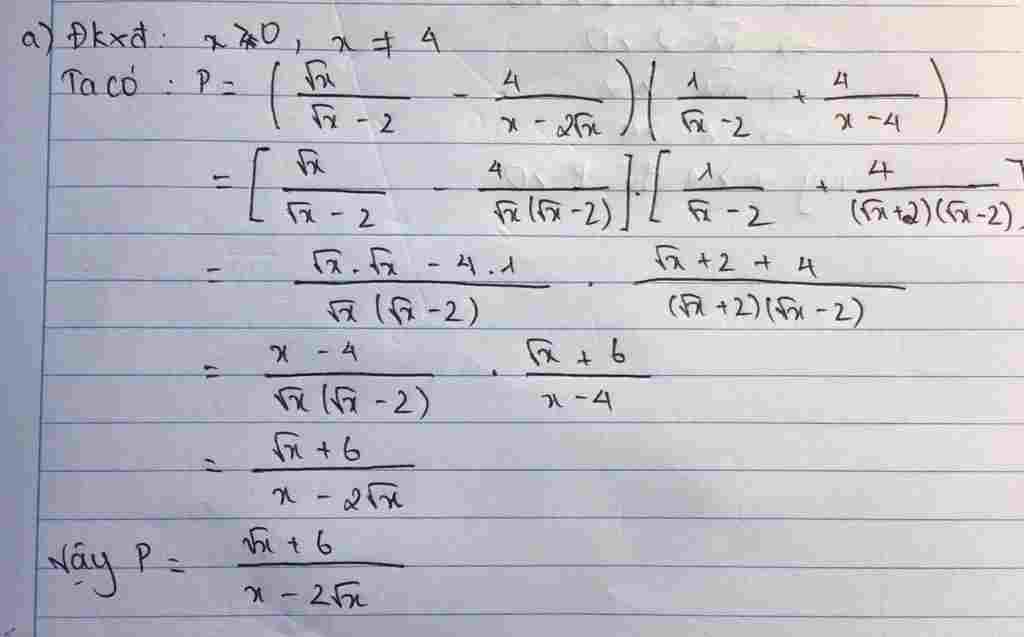 a) Đkxđ: x ≥ 0, x ≠ 4
Ta có: P = (√x/(√x - 2) - 4/(x - 2√x)) (1/(√x - 2) + 4/(x - 4))
= [√x/(√x - 2) - 4/(√x(√x - 2))] . [1/(√x - 2) + 4/((√x+2)(√x-2))]
= (√x . √x - 4 . 1)/(√x(√x - 2)) . (√x + 2 + 4)/((√x+2)(√x - 2))
= (x - 4)/(√x(√x - 2)) . (√x + 6)/(x - 4)
= (√x + 6)/(x - 2√x)
Vậy P = (√x + 6)/(x - 2√x)